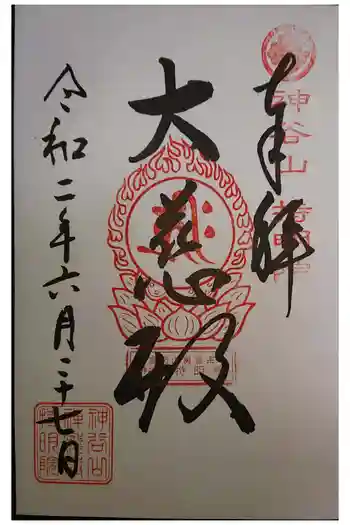 奉拝
神谷山
大慈殿
令和二年六月二十七日
神谷山